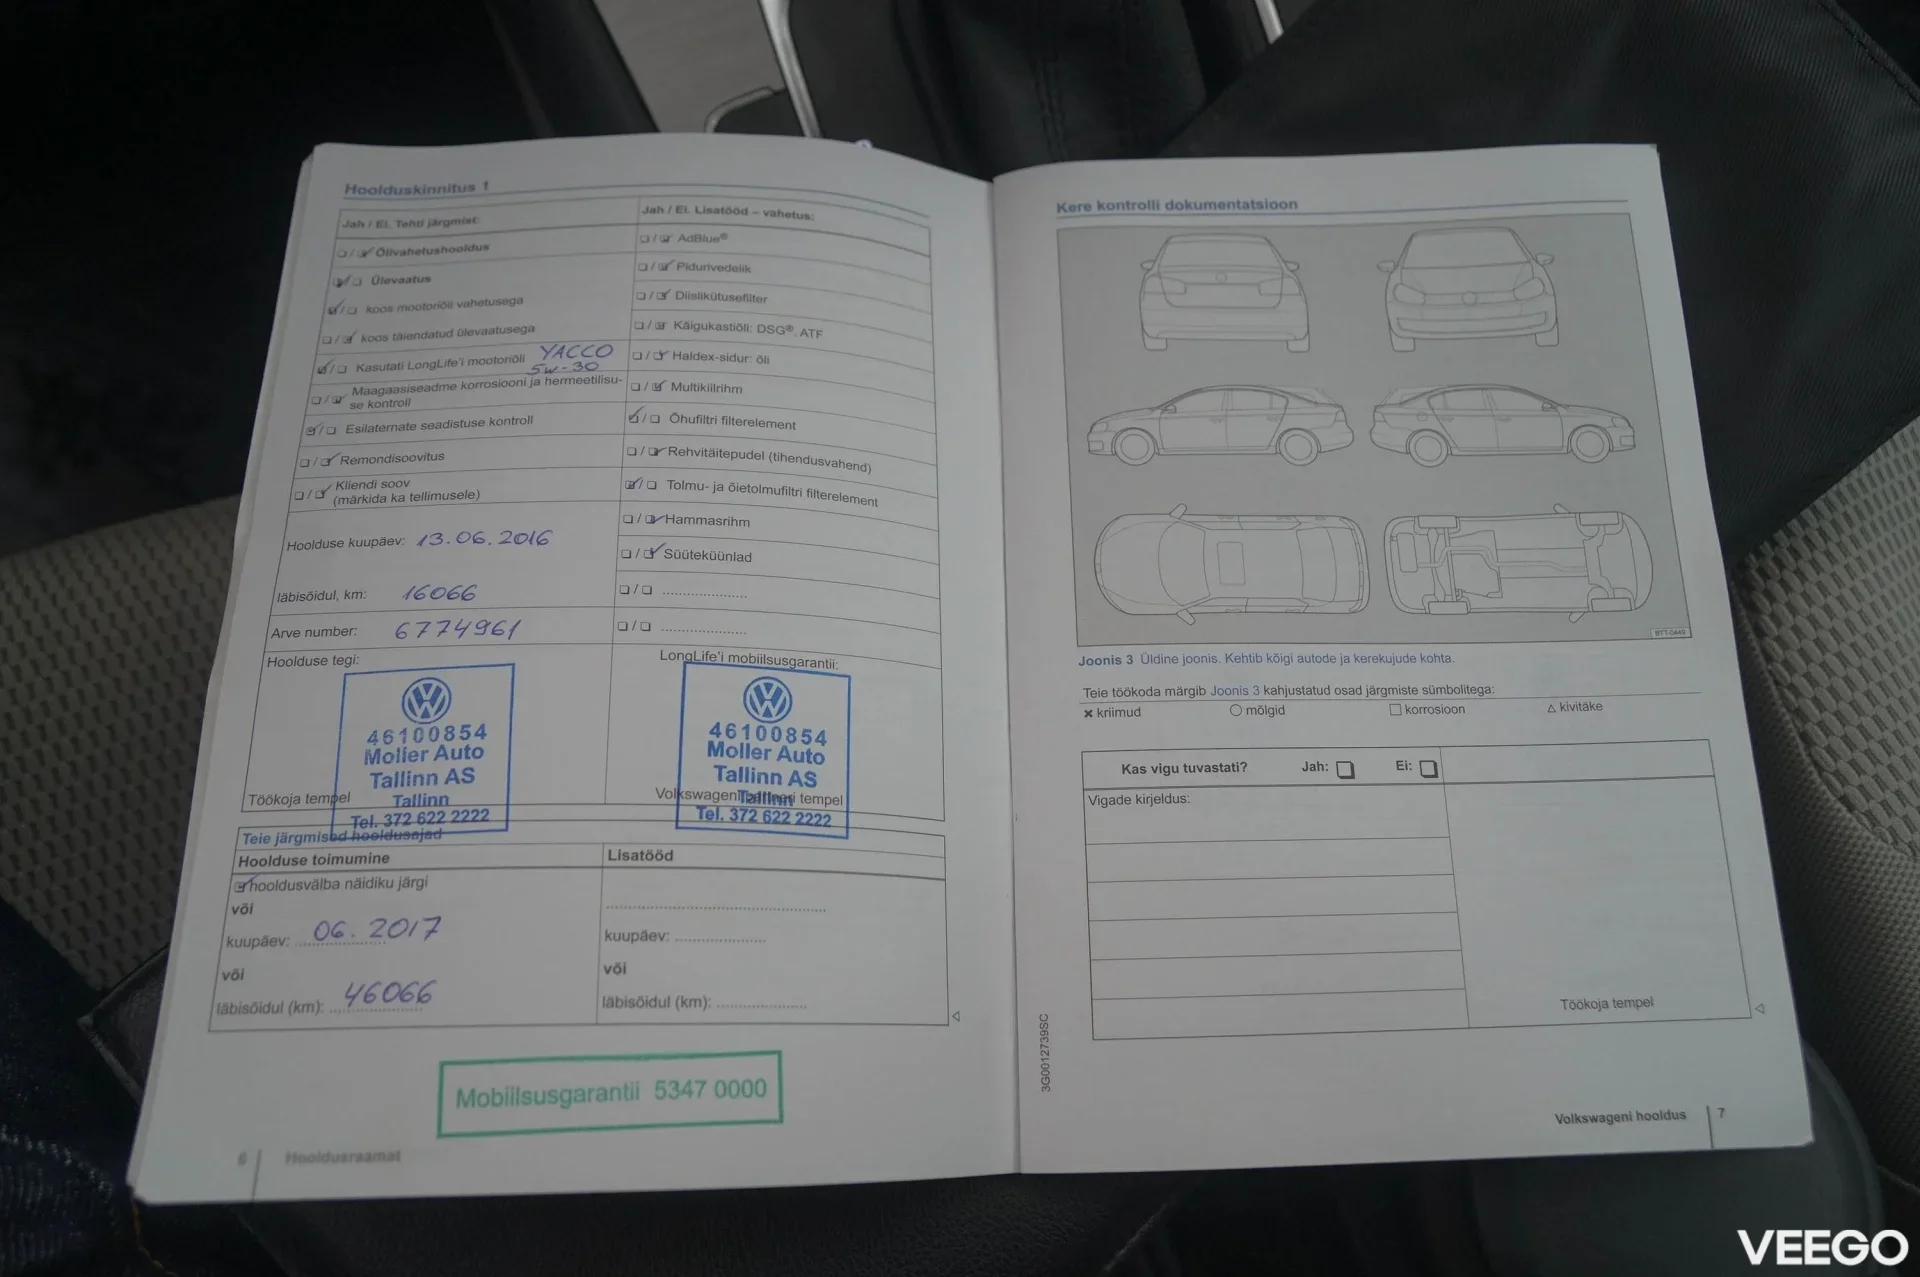 Hoolduskinnitus 1
Jah / Ei. Tehti järgmist:
Õlivahetushooldus
Ülevaatus
koos mootoriõli vahetusega
koos täiendatud ülevaatusega
Kasutati LongLife'i mootoriõli YACCO
5W-30
Maagaasiseadme korrosiooni ja hermeetilisu-
se kontroll
Esilaternate seadistuse kontroll
Remondisoovitus
Kliendi soov
(märkida ka tellimusele)
Hoolduse kuupäev: 13.06.2016
läbisõidul, km: 16066
Arve number: 6774961
Hoolduse tegi:
46100854
Moller Auto
Tallinn AS
Tallinn
Tel. 372 622 2222
Töökoja tempel
Jah / Ei. Lisatööd – vahetus:
AdBlue®
Pidurivedelik
Diislikütusefilter
Käigukastiõli: DSG®, ATF
Haldex-sidur: õli
Multikiilrihm
Õhufiltri filterelement
Rehvitäitepudel (tihendusvahend)
Tolmu- ja õietolmufiltri filterelement
Hammasrihm
Süüteküünlad
LongLife'i mobiilsusgarantii:
46100854
Moller Auto
Tallinn AS
Tallinn
Tel. 372 622 2222
Volkswageni partneri tempel
Teie järgmised hooldusajad
Hoolduse toimumine
hooldusvälba näidiku järgi
või
kuupäev: 06.2017
või
läbisõidul (km): 46066
Lisatööd
kuupäev:
või
läbisõidul (km):
Mobiilsusgarantii 5347 0000
6 Hooldusraamat
Kere kontrolli dokumentatsioon
BTT-0449
Joonis 3 Üldine joonis. Kehtib kõigi autode ja kerekujude kohta.
Teie töökoda märgib Joonis 3 kahjustatud osad järgmiste sümbolitega:
kriimud mõlgid korrosioon kivitäke
Kas vigu tuvastati? Jah: Ei:
Vigade kirjeldus:
Töökoja tempel
3G0012739SC
Volkswageni hooldus 7
VEEGO